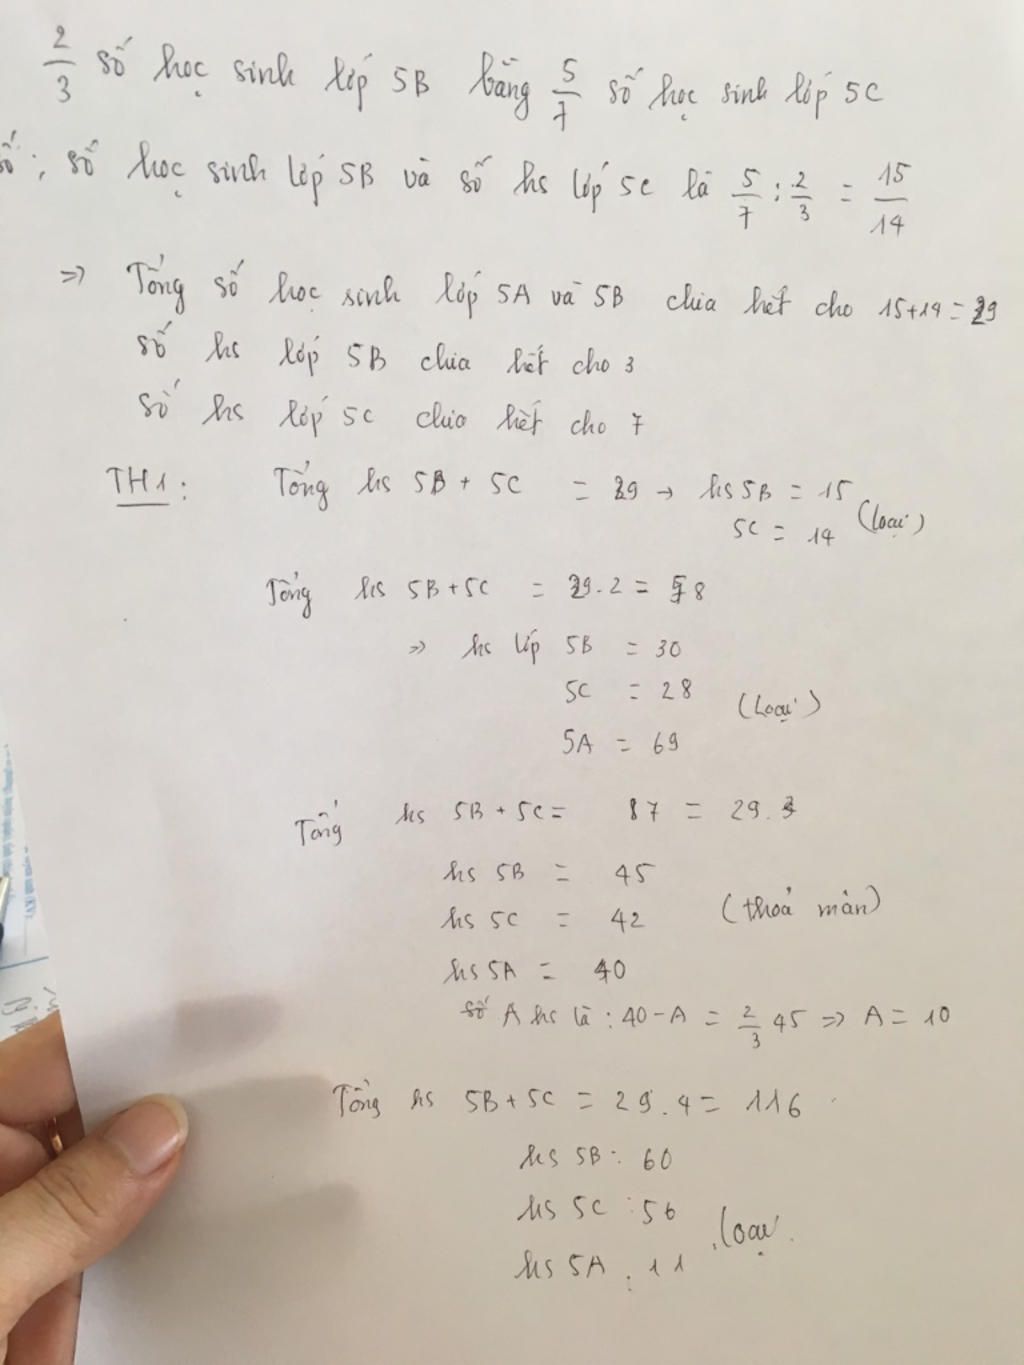 2/3 số học sinh lớp 5B bằng 5/7 số học sinh lớp 5C
số; số học sinh lớp 5B và số hs lớp 5C là 5/7 : 2/3 = 15/14
=> Tổng số học sinh lớp 5A và 5B chia hết cho 15+14=29
số hs lớp 5B chia hết cho 3
số hs lớp 5C chia hết cho 7
TH1: Tổng hs 5B + 5C = 29 → hs 5B = 15
5C = 14 (loại)
Tổng hs 5B+5C = 29.2 = 58
=> hs lớp 5B = 30
5C = 28
(Loại)
5A = 69
Tổng hs 5B + 5C = 87 = 29.3
hs 5B = 45
hs 5C = 42 (thoả mãn)
hs 5A = 40
số A hs là : 40-A = 2/3 45 => A = 10
Tổng hs 5B+5C = 29.4 = 116
hs 5B: 60
hs 5C : 56
loại.
hs 5A : 11